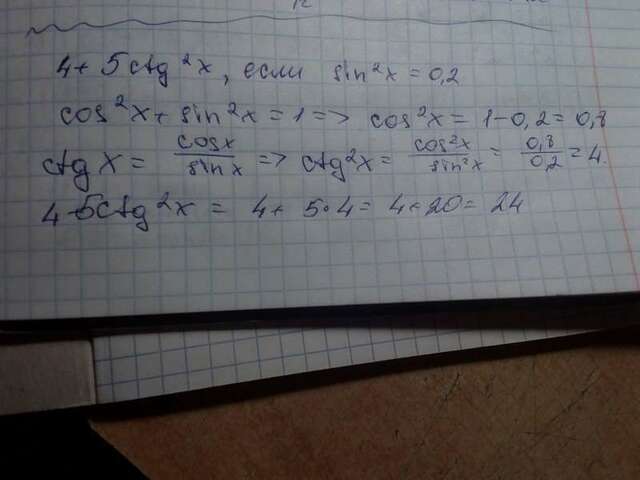 4 + 5ctg²x, если sin²x = 0,2
cos²x + sin²x = 1 => cos²x = 1 - 0,2 = 0,8
ctg x = cosx/sinx => ctg²x = cos²x/sin²x = 0,8/0,2 = 4.
4 - 5ctg²x = 4 + 5·4 = 4 + 20 = 24